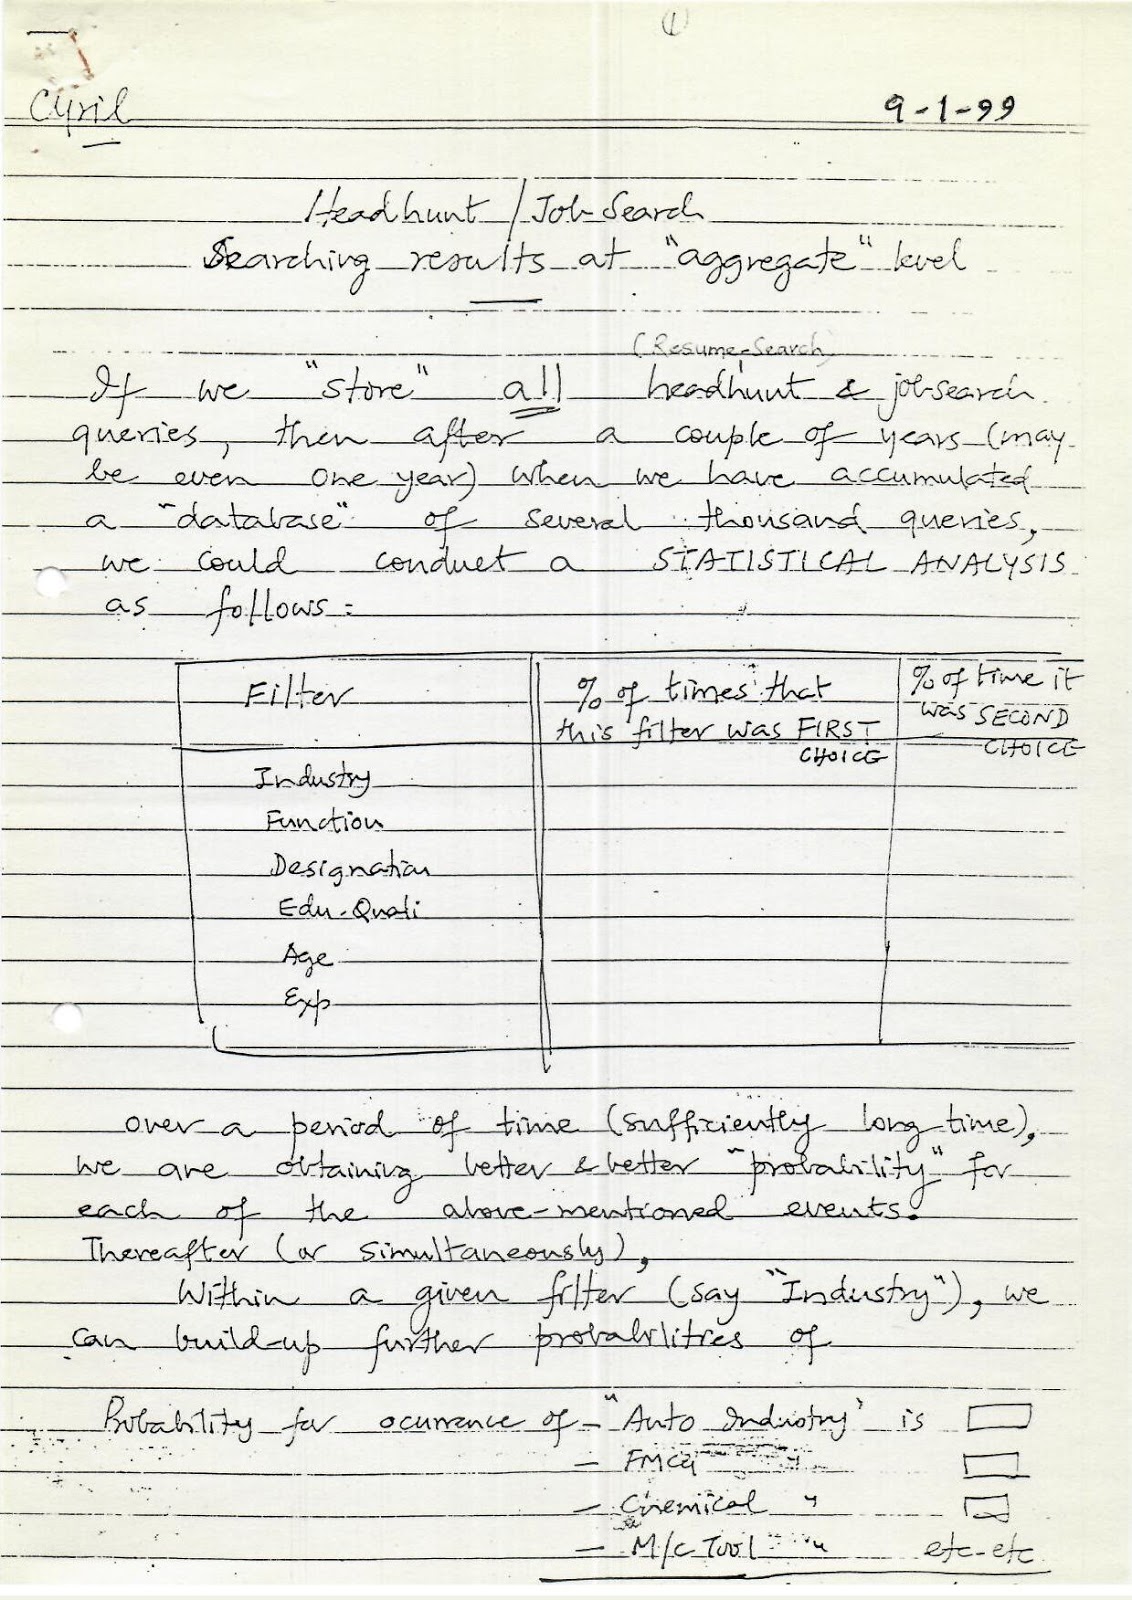 1
Cyril
9-1-99
Headhunt / Job-Search
Searching results at "aggregate" level
(Resume-Search)
If we "store" all headhunt & jobsearch
queries, then after a couple of years (may
be even one year) when we have accumulated
a "database" of several thousand queries,
we could conduct a STATISTICAL ANALYSIS
as follows:
Filter
% of times that
this filter was FIRST
CHOICE
% of time it
was SECOND
CHOICE
Industry
Function
Designation
Edu-Quali
Age
Exp
over a period of time (sufficiently long time),
we are obtaining better & better "probability" for
each of the above-mentioned events.
Thereafter (or simultaneously),
Within a given filter (say "Industry"), we
can build-up further probabilities of
Probability for ocurrance of - "Auto Industry" is
- FMCG "
- Chemical "
- M/c Tool " etc-etc